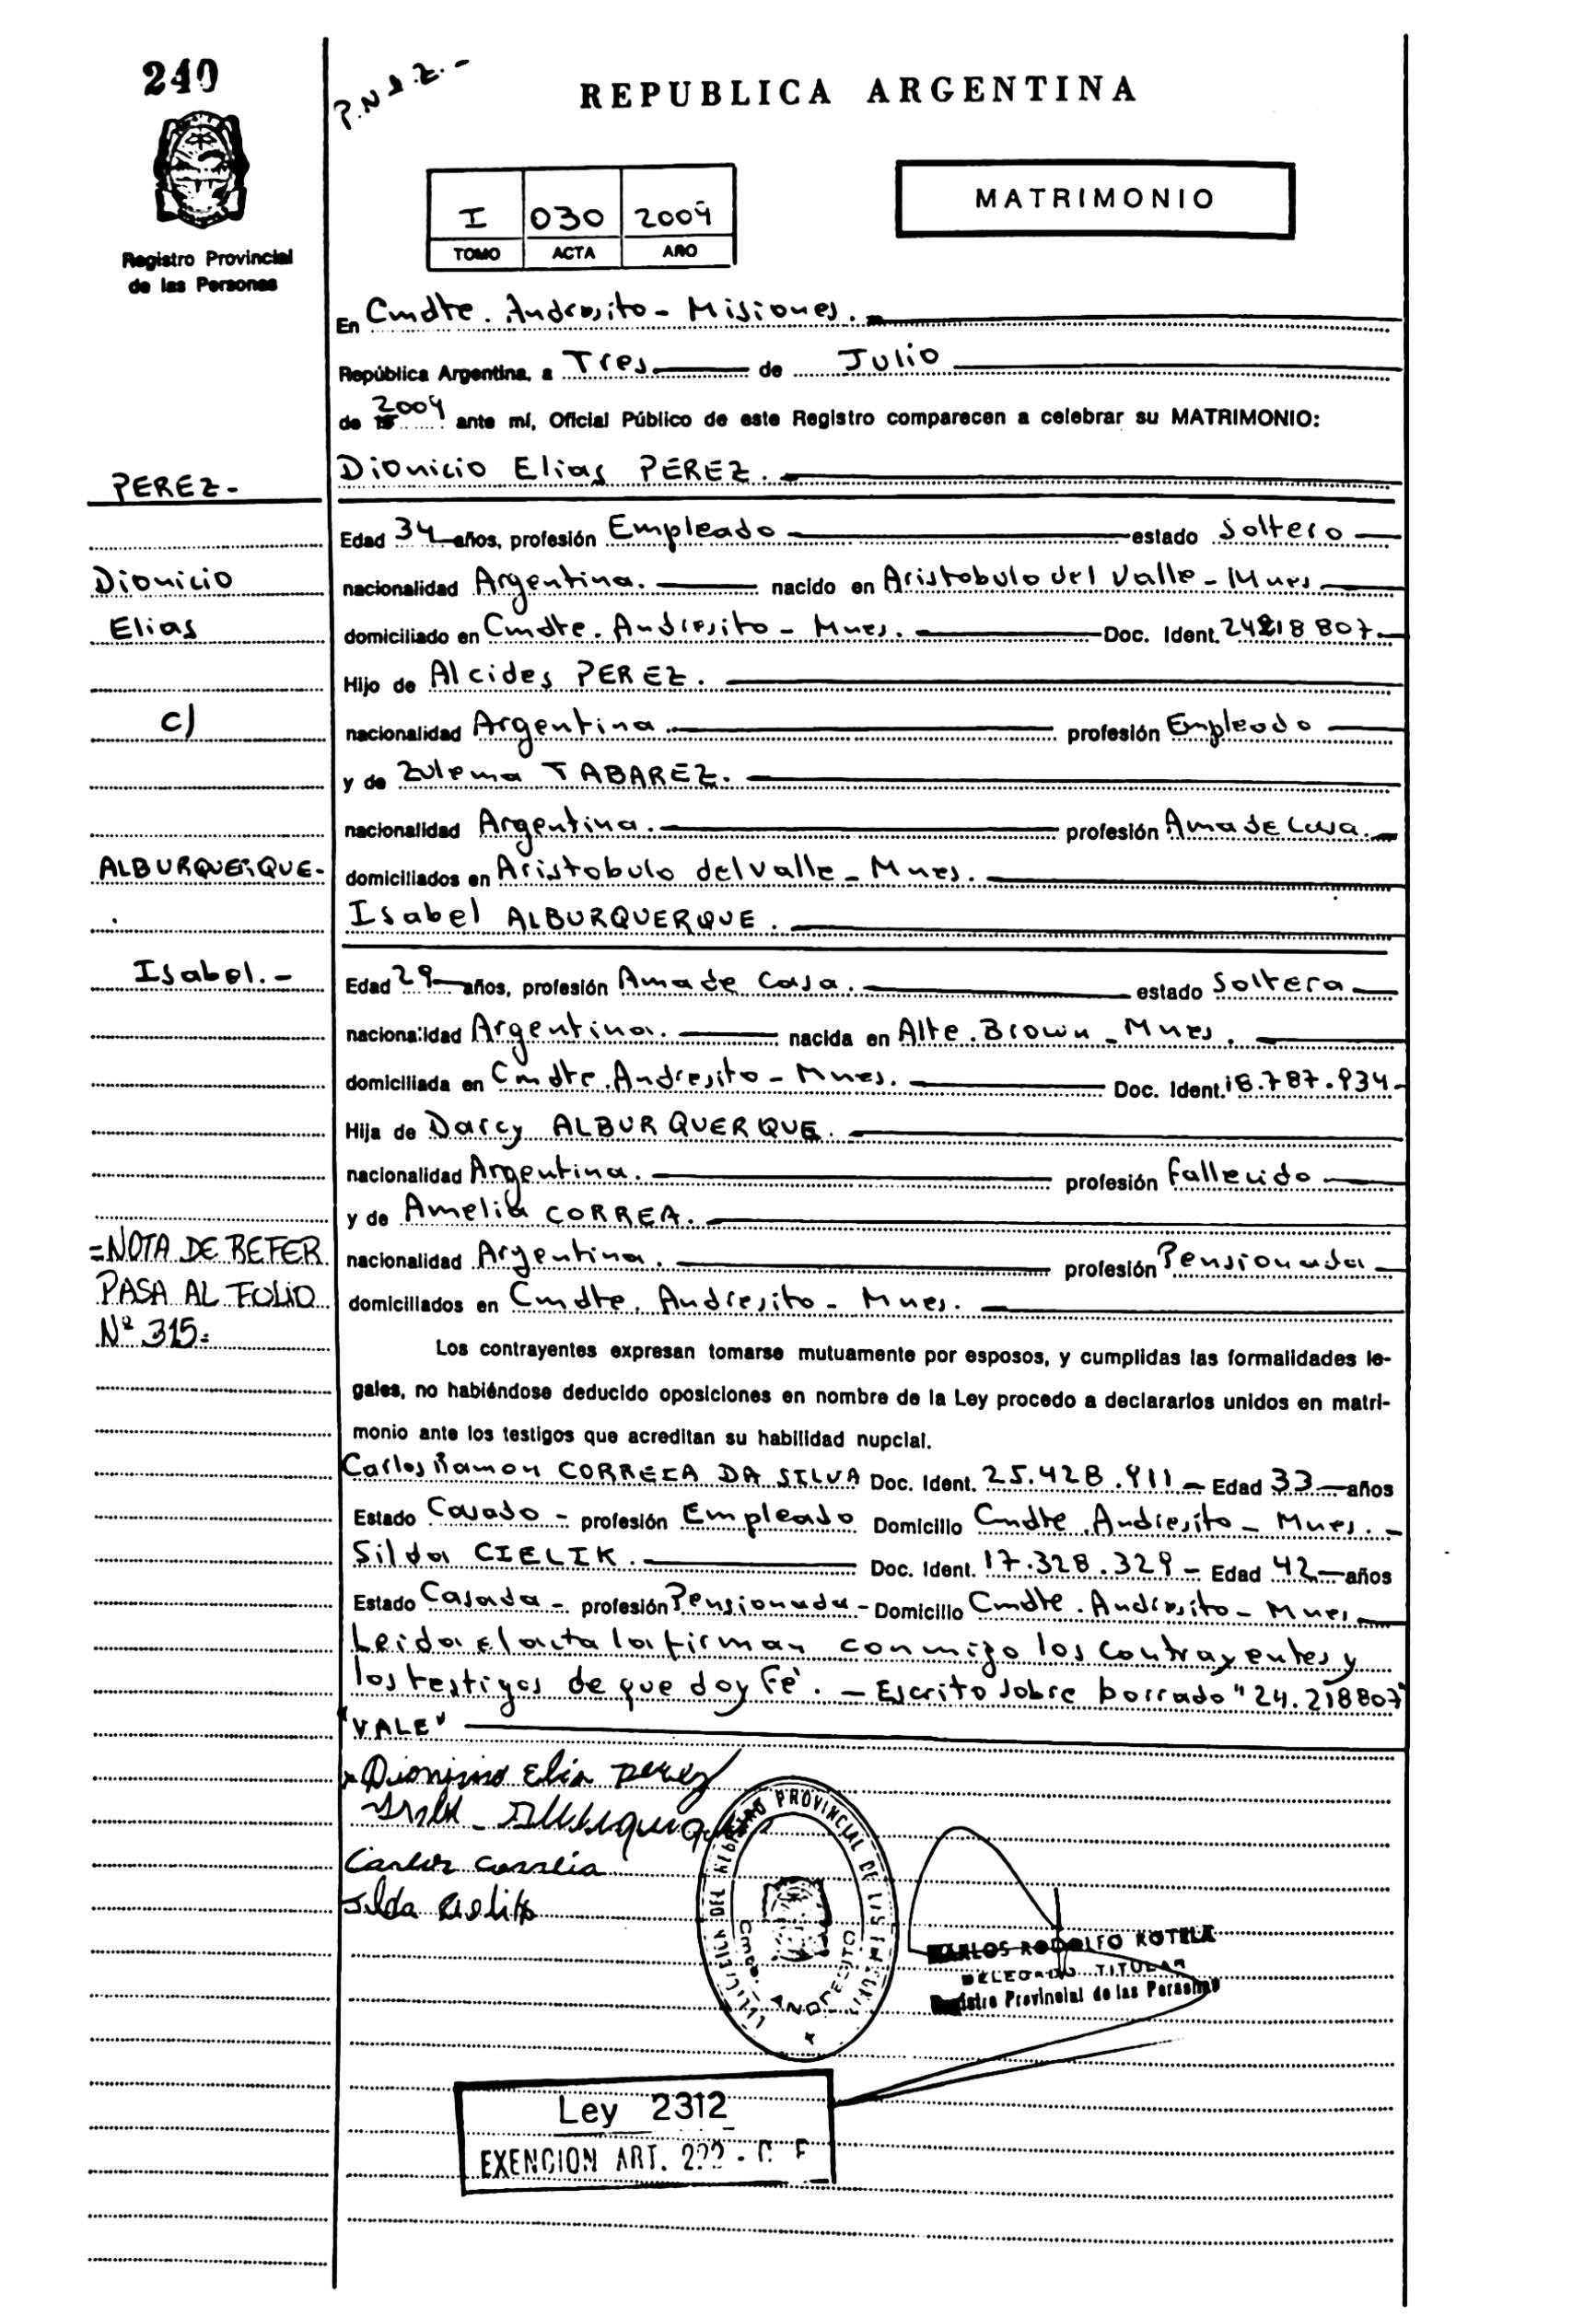 240
P.N.
REPUBLICA ARGENTINA
Registro Provincial
de las Personas
I 030 2009
TOMO ACTA AÑO
MATRIMONIO
En Cmdte. Andresito - Misiones.
República Argentina, a Tres de Julio
de 2009 ante mí, Oficial Público de este Registro comparecen a celebrar su MATRIMONIO:
PEREZ-
Dionicio Elias PEREZ.
Edad 34 años, profesión Empleado estado Soltero
Dionicio
nacionalidad Argentina. nacido en Aristobulo del Valle - Mnes
Elias
domiciliado en Cmdte. Andresito - Mnes. Doc. Ident. 24218807
Hijo de Alcides PEREZ.
c/
nacionalidad Argentina profesión Empleado
y de Zulema TABAREZ.
nacionalidad Argentina. profesión Ama de Casa.
ALBURQUERQUE-
domiciliados en Aristobulo del Valle - Mnes.
Isabel ALBURQUERQUE.
Isabel.-
Edad 29 años, profesión Ama de Casa. estado Soltera
nacionalidad Argentina. nacida en Alte. Brown - Mnes.
domiciliada en Cmdte. Andresito - Mnes. Doc. Ident. 18.787.934-
Hija de Darcy ALBURQUERQUE.
nacionalidad Argentina. profesión fallecido
y de Amelia CORREA.
=NOTA DE REFER
PASA AL FOLIO
Nº 315=
nacionalidad Argentina. profesión Pensionada
domiciliados en Cmdte. Andresito - Mnes.
Los contrayentes expresan tomarse mutuamente por esposos, y cumplidas las formalidades le-
gales, no habiéndose deducido oposiciones en nombre de la Ley procedo a declararlos unidos en matri-
monio ante los testigos que acreditan su habilidad nupcial.
Carlos Ramon CORREIA DA SILVA Doc. Ident. 25.428.911 - Edad 33 años
Estado Casado - profesión Empleado Domicilio Cmdte. Andresito - Mnes. -
Silda CIELIK. Doc. Ident. 17.328.329 - Edad 42 años
Estado Casada - profesión Pensionada - Domicilio Cmdte. Andresito - Mnes.
Leida el acta la firman conmigo los contrayentes y
los testigos de que doy Fé. - Escrito sobre borrado "24.218807"
"VALE"
Elia perez
Carlos Correia
Silda Cielik
PROVINCIAL DE LAS
Cmdte. ANDRESITO
CARLOS RODOLFO ROTELA
DELEGADO TITULAR
Registro Provincial de las Personas
Ley 2312
EXENCION ART. 222 -